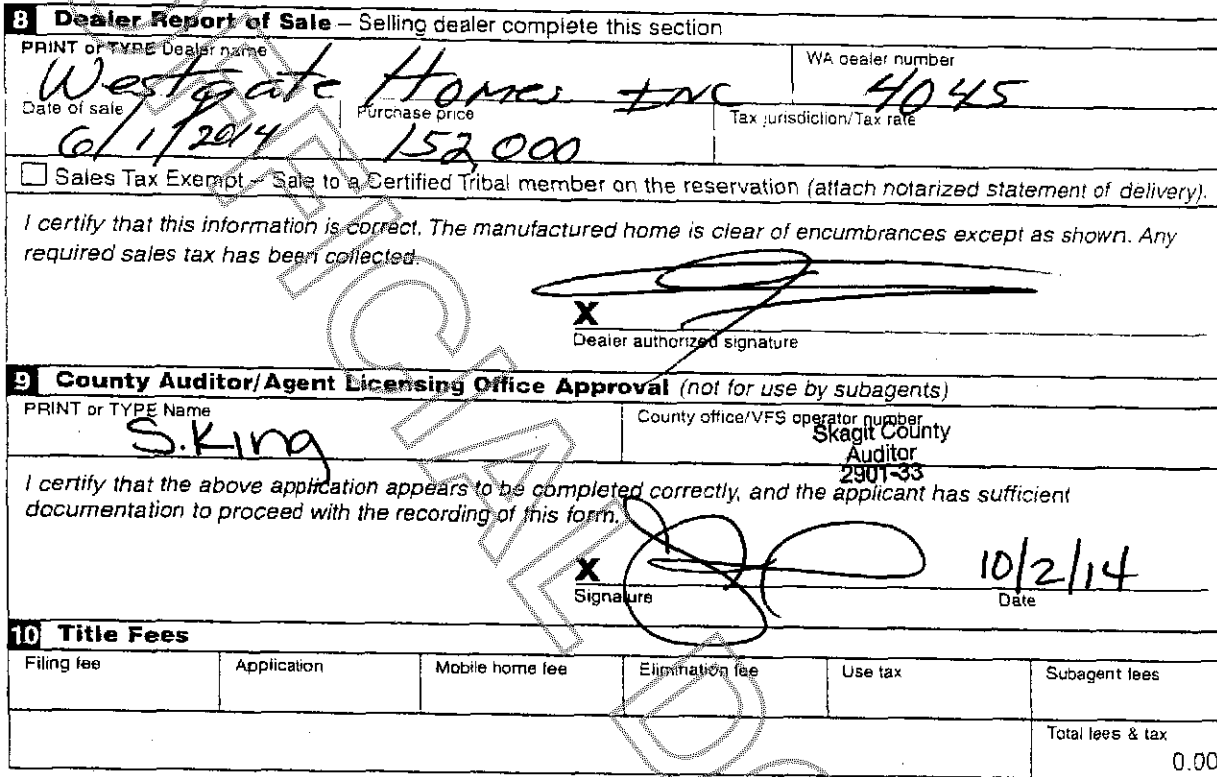 8 Dealer Report of Sale – Selling dealer complete this section
PRINT or TYPE Dealer name
WA dealer number
Westgate Homes INC
4045
Date of sale
Purchase price
Tax jurisdiction/Tax rate
6/1/2014
152,000
Sales Tax Exempt – Sale to a Certified Tribal member on the reservation (attach notarized statement of delivery).
I certify that this information is correct. The manufactured home is clear of encumbrances except as shown. Any
required sales tax has been collected.
X
Dealer authorized signature
9 County Auditor/Agent Licensing Office Approval (not for use by subagents)
PRINT or TYPE Name
County office/VFS operator number
S. King
Skagit County
Auditor
2901-33
I certify that the above application appears to be completed correctly, and the applicant has sufficient
documentation to proceed with the recording of this form.
X
10/2/14
Signature
Date
10 Title Fees
Filing fee
Application
Mobile home fee
Elimination fee
Use tax
Subagent fees
Total fees & tax
0.00